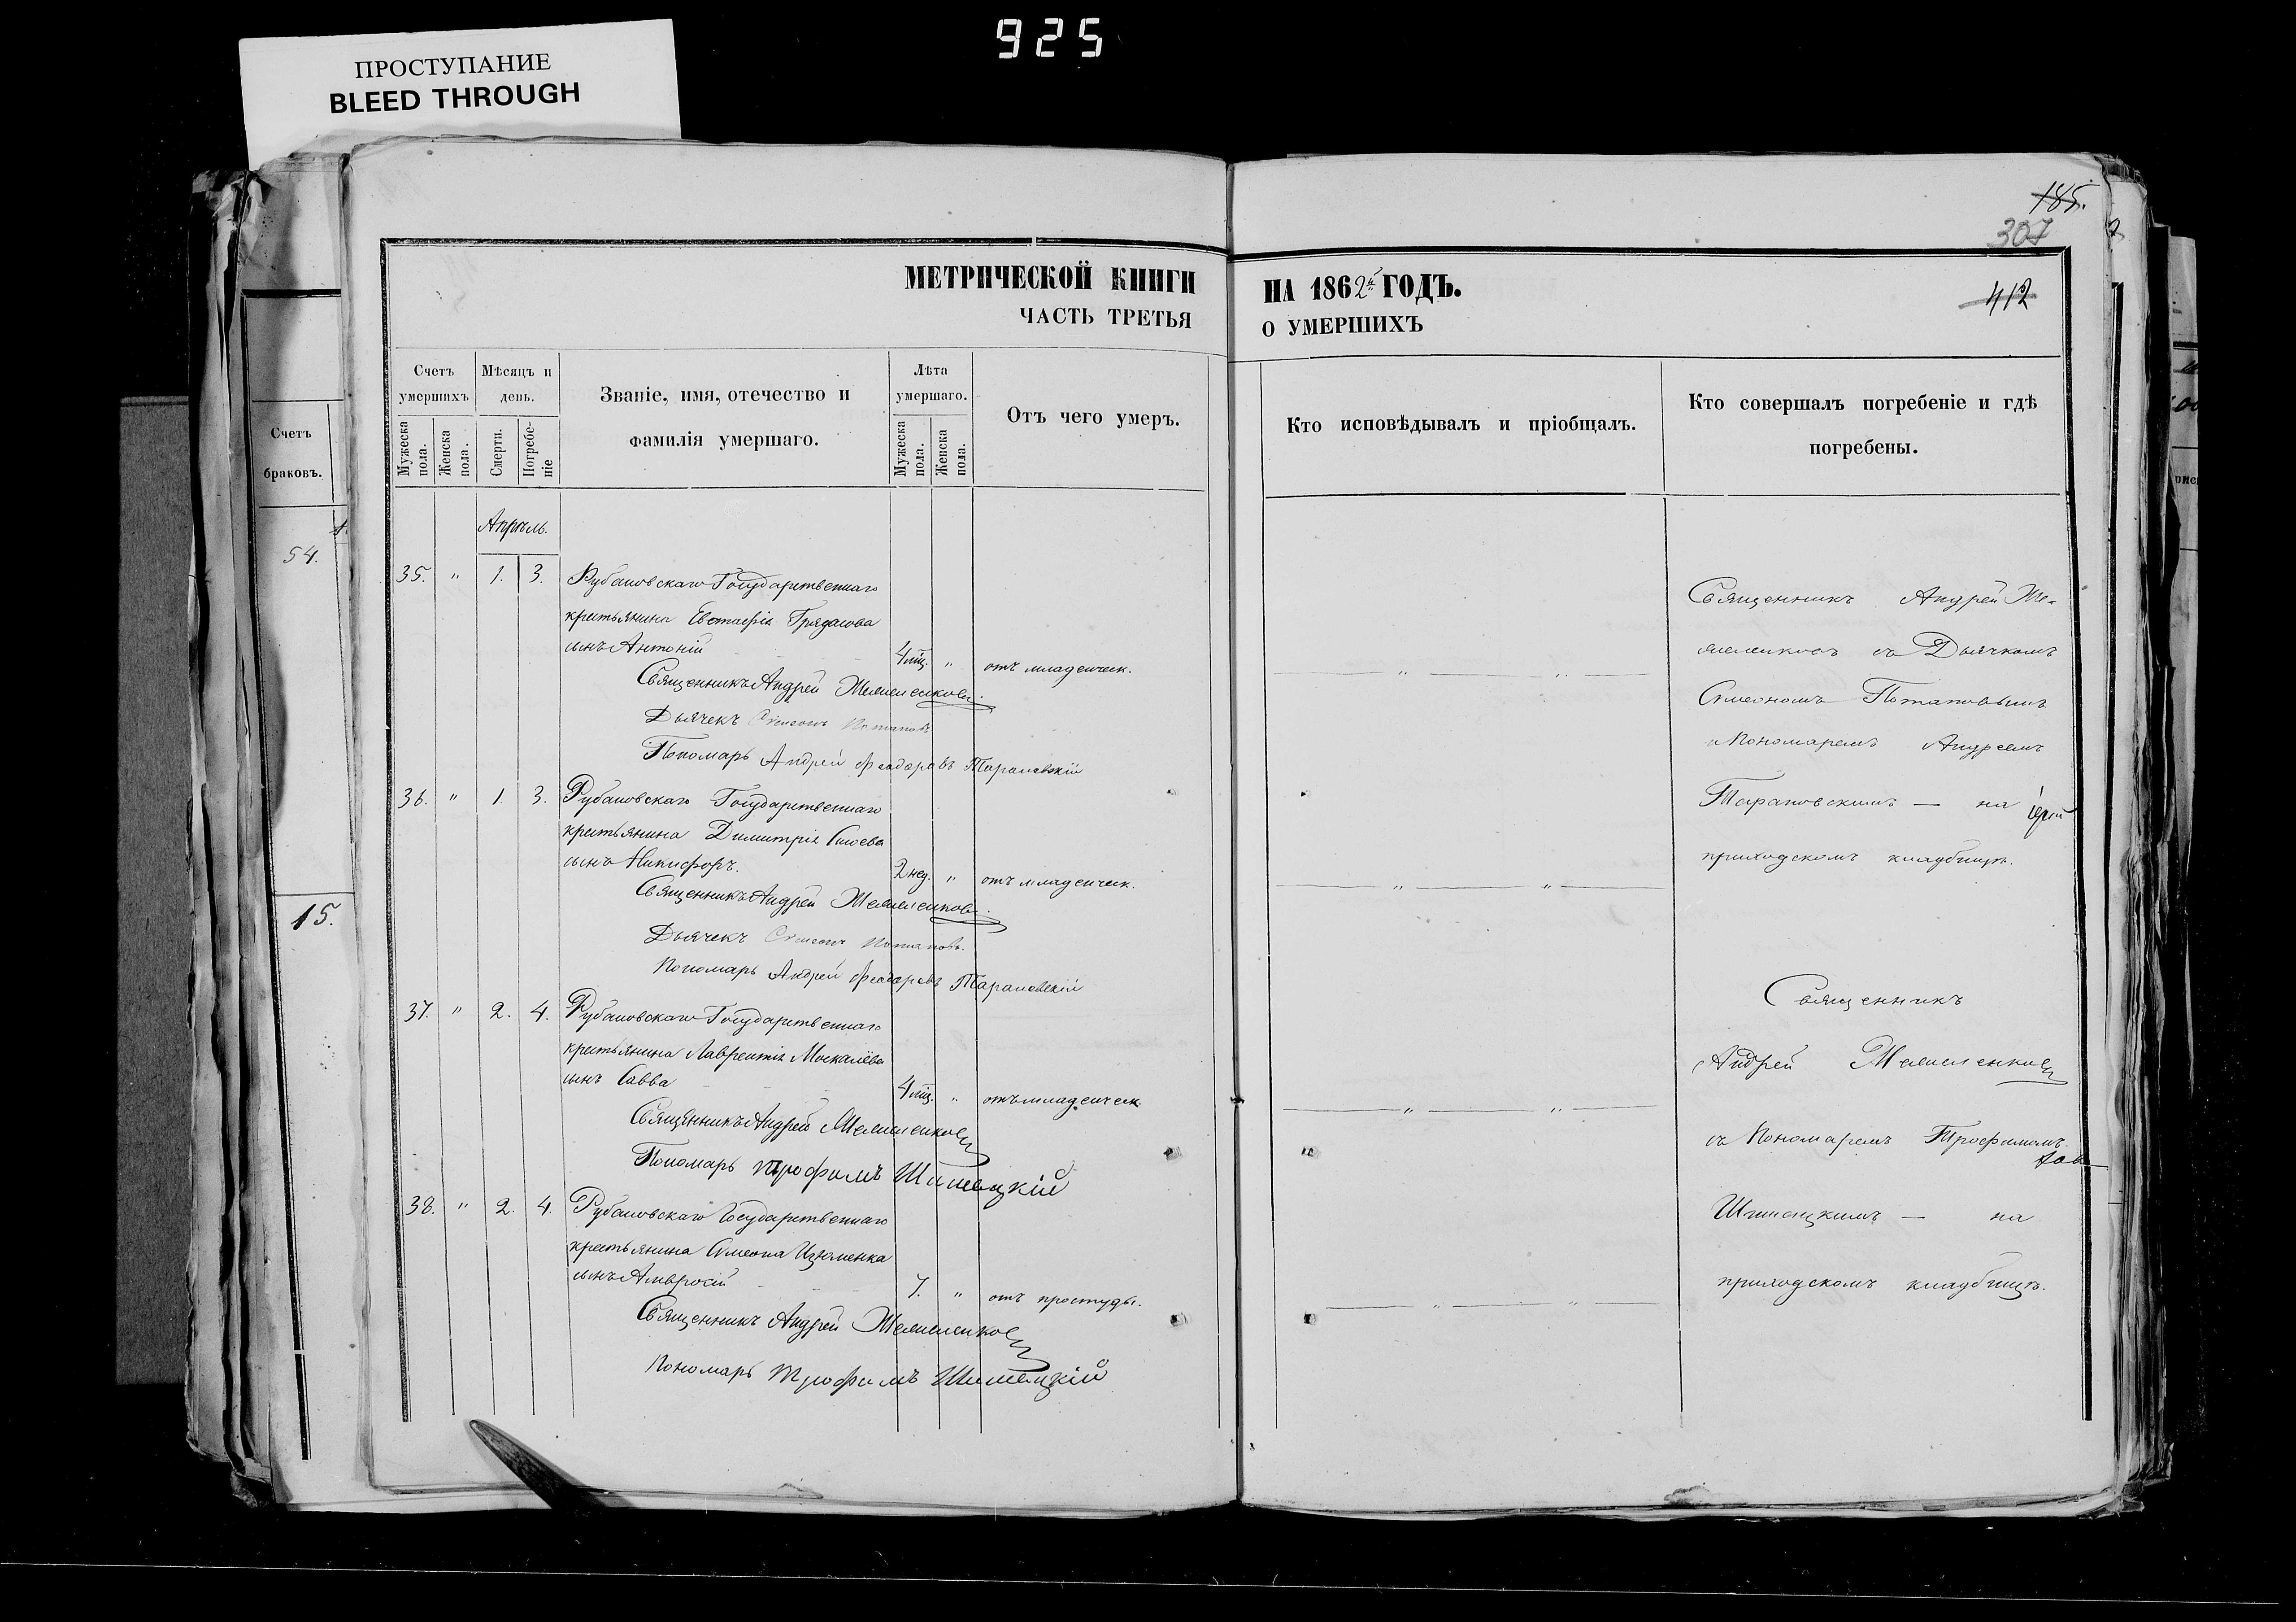 925
ПРОСТУПАНИЕ
BLEED THROUGH
185.
307
412
МЕТРИЧЕСКОЙ КНИГИ НА 1862й ГОДЪ.
ЧАСТЬ ТРЕТЬЯ О УМЕРШИХЪ
Счетъ умершихъ
Мѣсяцъ и день.
Званіе, имя, отечество и фамилія умершаго.
Лѣта умершаго.
Отъ чего умеръ.
Кто исповѣдывалъ и пріобщалъ.
Кто совершалъ погребеніе и гдѣ погребены.
Мужеска пола.
Женска пола.
Смерти.
Погребеніе
Мужеска пола.
Женска пола.
Счетъ
браковъ.
54.
15.
Апрѣль.
35. " 1. 3. Рубановскаго Государственнаго
крестьянина Евстафія
сынъ Антоній 4 мц. " отъ младенческ.
Священникъ Андрей
Дьячекъ Симеонъ Потаповъ
Пономарь Андрей Феодоровъ Тарановскій
36. " 1. 3. Рубановскаго Государственнаго
крестьянина Димитрія
сынъ Никифоръ. 2 нед. " отъ младенческ.
Священникъ Андрей
Дьячекъ Симеонъ Потаповъ.
Пономарь Андрей Феодоровъ Тарановскій
37. " 2. 4. Рубановскаго Государственнаго
крестьянина Лаврентія Москалёва
сынъ Савва 4 мц. " отъ младенческ.
Священникъ Андрей
Пономарь Трофимъ
38. " 2. 4. Рубановскаго Государственнаго
крестьянина Симеона Изюменка
сынъ Амвросій 7. " отъ простуды.
Священникъ Андрей
Пономарь Трофимъ
Священникъ Андрей
съ Дьячкомъ
Симеономъ Потаповымъ
и Пономаремъ Андреемъ
Тарановскимъ — на
приходскомъ кладбищѣ.
Священникъ
Андрей
съ Пономаремъ Трофимомъ
— на
приходскомъ кладбищѣ.